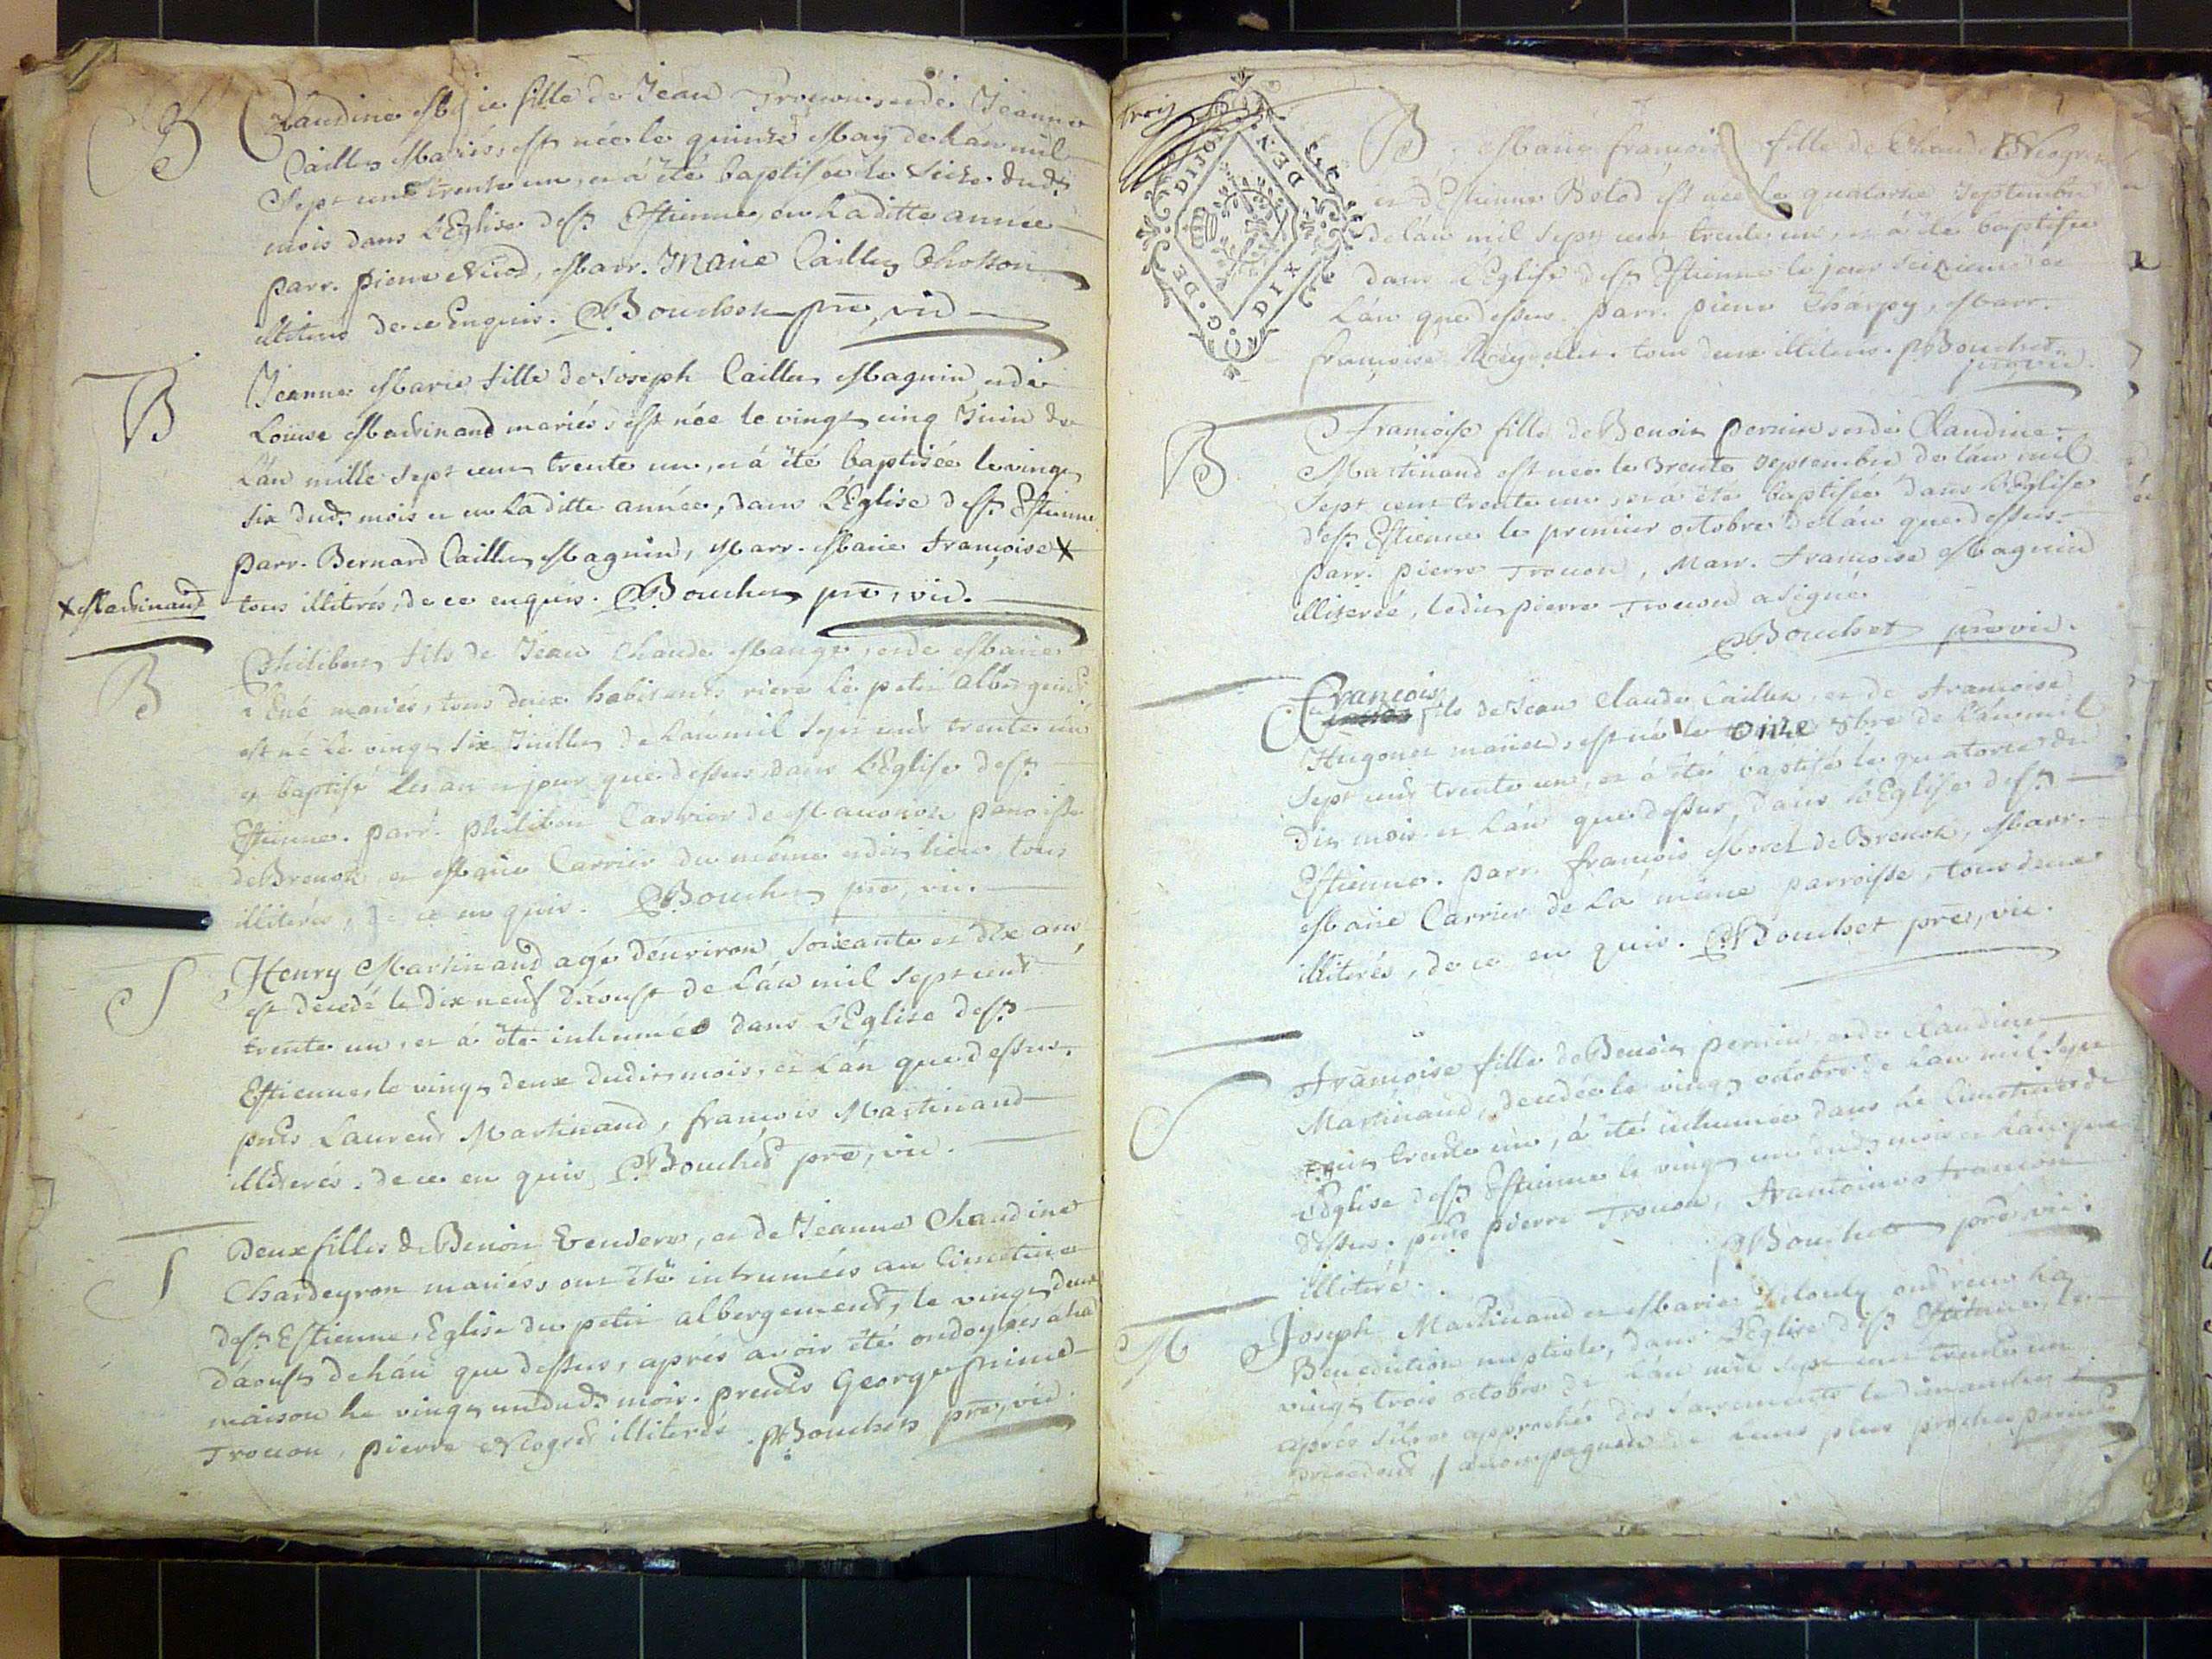 B Claudine Marie fille de Jean Trouvon, et de Jeanne
Caillet Mariés, est née le quinze May de l'an mil
Sept cent trente un, et à été baptisée le Seize dud.
mois dans l'Eglise de St. Estienne, en laditte année
parr. pierre Niod, Marr. Marie Caillet
illiterés de ce Enquis. Bouchet pre, vic
B Jeanne Marie fille de Joseph Caillet Magnin, et de
Loüise Martinand mariés, est née le vingt cinq Juin de
l'an mille sept cent trente un, et à été baptisée le vingt
six dud. mois et en laditte année, dans l'Eglise de St. Estienne
parr. Bernard Caillet Magnin, Marr. Marie françoise X
X Martinand
tous illiterés, de ce enquis. Bouchet pre, vic.
B Philibert fils de Jean Claude Mange, et de Marie
mariés, tous deux habitants riere le petit
est né le vingt six Juillet de l'an mil sept cent trente un
et baptisé les an et jour que dessus, dans l'Eglise de St.
Estienne. parr. philibert Carrier de paroisse
de Brenod, et Marie Carrier du même dit lieu, tous
illiterés, de ce en quis. Bouchet pre, vic.
S Henry Martinand agé d'environ soixante et dix ans,
est decedé le dix neuf d'aoust de l'an mil sept cent
trente un, et à été inhumé dans l'Eglise de St.
Estienne, le vingt deux dudit mois, et l'an que dessus.
pnts Laurent Martinand, françois Martinand
illiterés. de ce en quis, Bouchet pre, vic.
S Deux filles de Benoit Vendero, et de Jeanne Claudine
Chardeyron mariés, ont été inhumées au Cimetiere
de St. Estienne, Eglise du petit albergement, le vingt deux
d'aoust de l'an que dessus, après avoir été ondoyées a la
maison le vingt un dud. mois. presents George
Trouvon, pierre Niogret illiterés. Bouchet pre, vic.
trois
G. DE DIJON
DIX DEN
B Marie françoise fille de Claude Niogret
et d'Estienne Bolod est née le quatorze Septembre
de l'an mil sept cent trente un, et à été baptisée
dans l'Eglise de St. Estienne le jour seizieme et
l'an que dessus. parr. pierre Charpy, Marr.
françoise tous deux illiterés. Bouchet
pre, vic.
B Françoise fille de Benoit pernin, et de Claudine
Martinand est née le trente septembre de l'an mil
Sept cent trente un, et à été baptisée dans l'Eglise
de St. Estienne le premier octobre de l'an que dessus.
parr. pierre Trouvon, Marr. françoise Magnin
illiterée, ledit pierre Trouvon a signé.
Bouchet pre vic.
François
fils de Jean Claude Caillet et de françoise
Hugonet mariés, est né le onze 8bre de l'an mil
Sept cent trente un, et à été baptisé le quatorze du
dit mois et l'an que dessus, dans l'Eglise de St.
Estienne. parr. françois Morel de Brenod, Marr.
Marie Carrier de la même parroisse, tous deux
illiterés, de ce en quis. Bouchet pre, vic.
S Françoise fille de Benoit pernin, et de Claudine
Martinand, decedée le vingt octobre de l'an mil sept
cent trente un, à été inhumée dans le Cimetiere de
l'Eglise de St. Estienne le vingt un dud. mois et l'an que
dessus. pnts pierre Trouvon,
illiteré. Bouchet pre, vic.
M Joseph Martinand et Marie ont reçu la
Benediction nuptiale, dans l'Eglise de St. Estienne, le
vingt trois octobre de l'an mil sept cent trente un
après s'être approchés des sacrements le dimanche
precedent, accompagnés de leurs plus proches parents